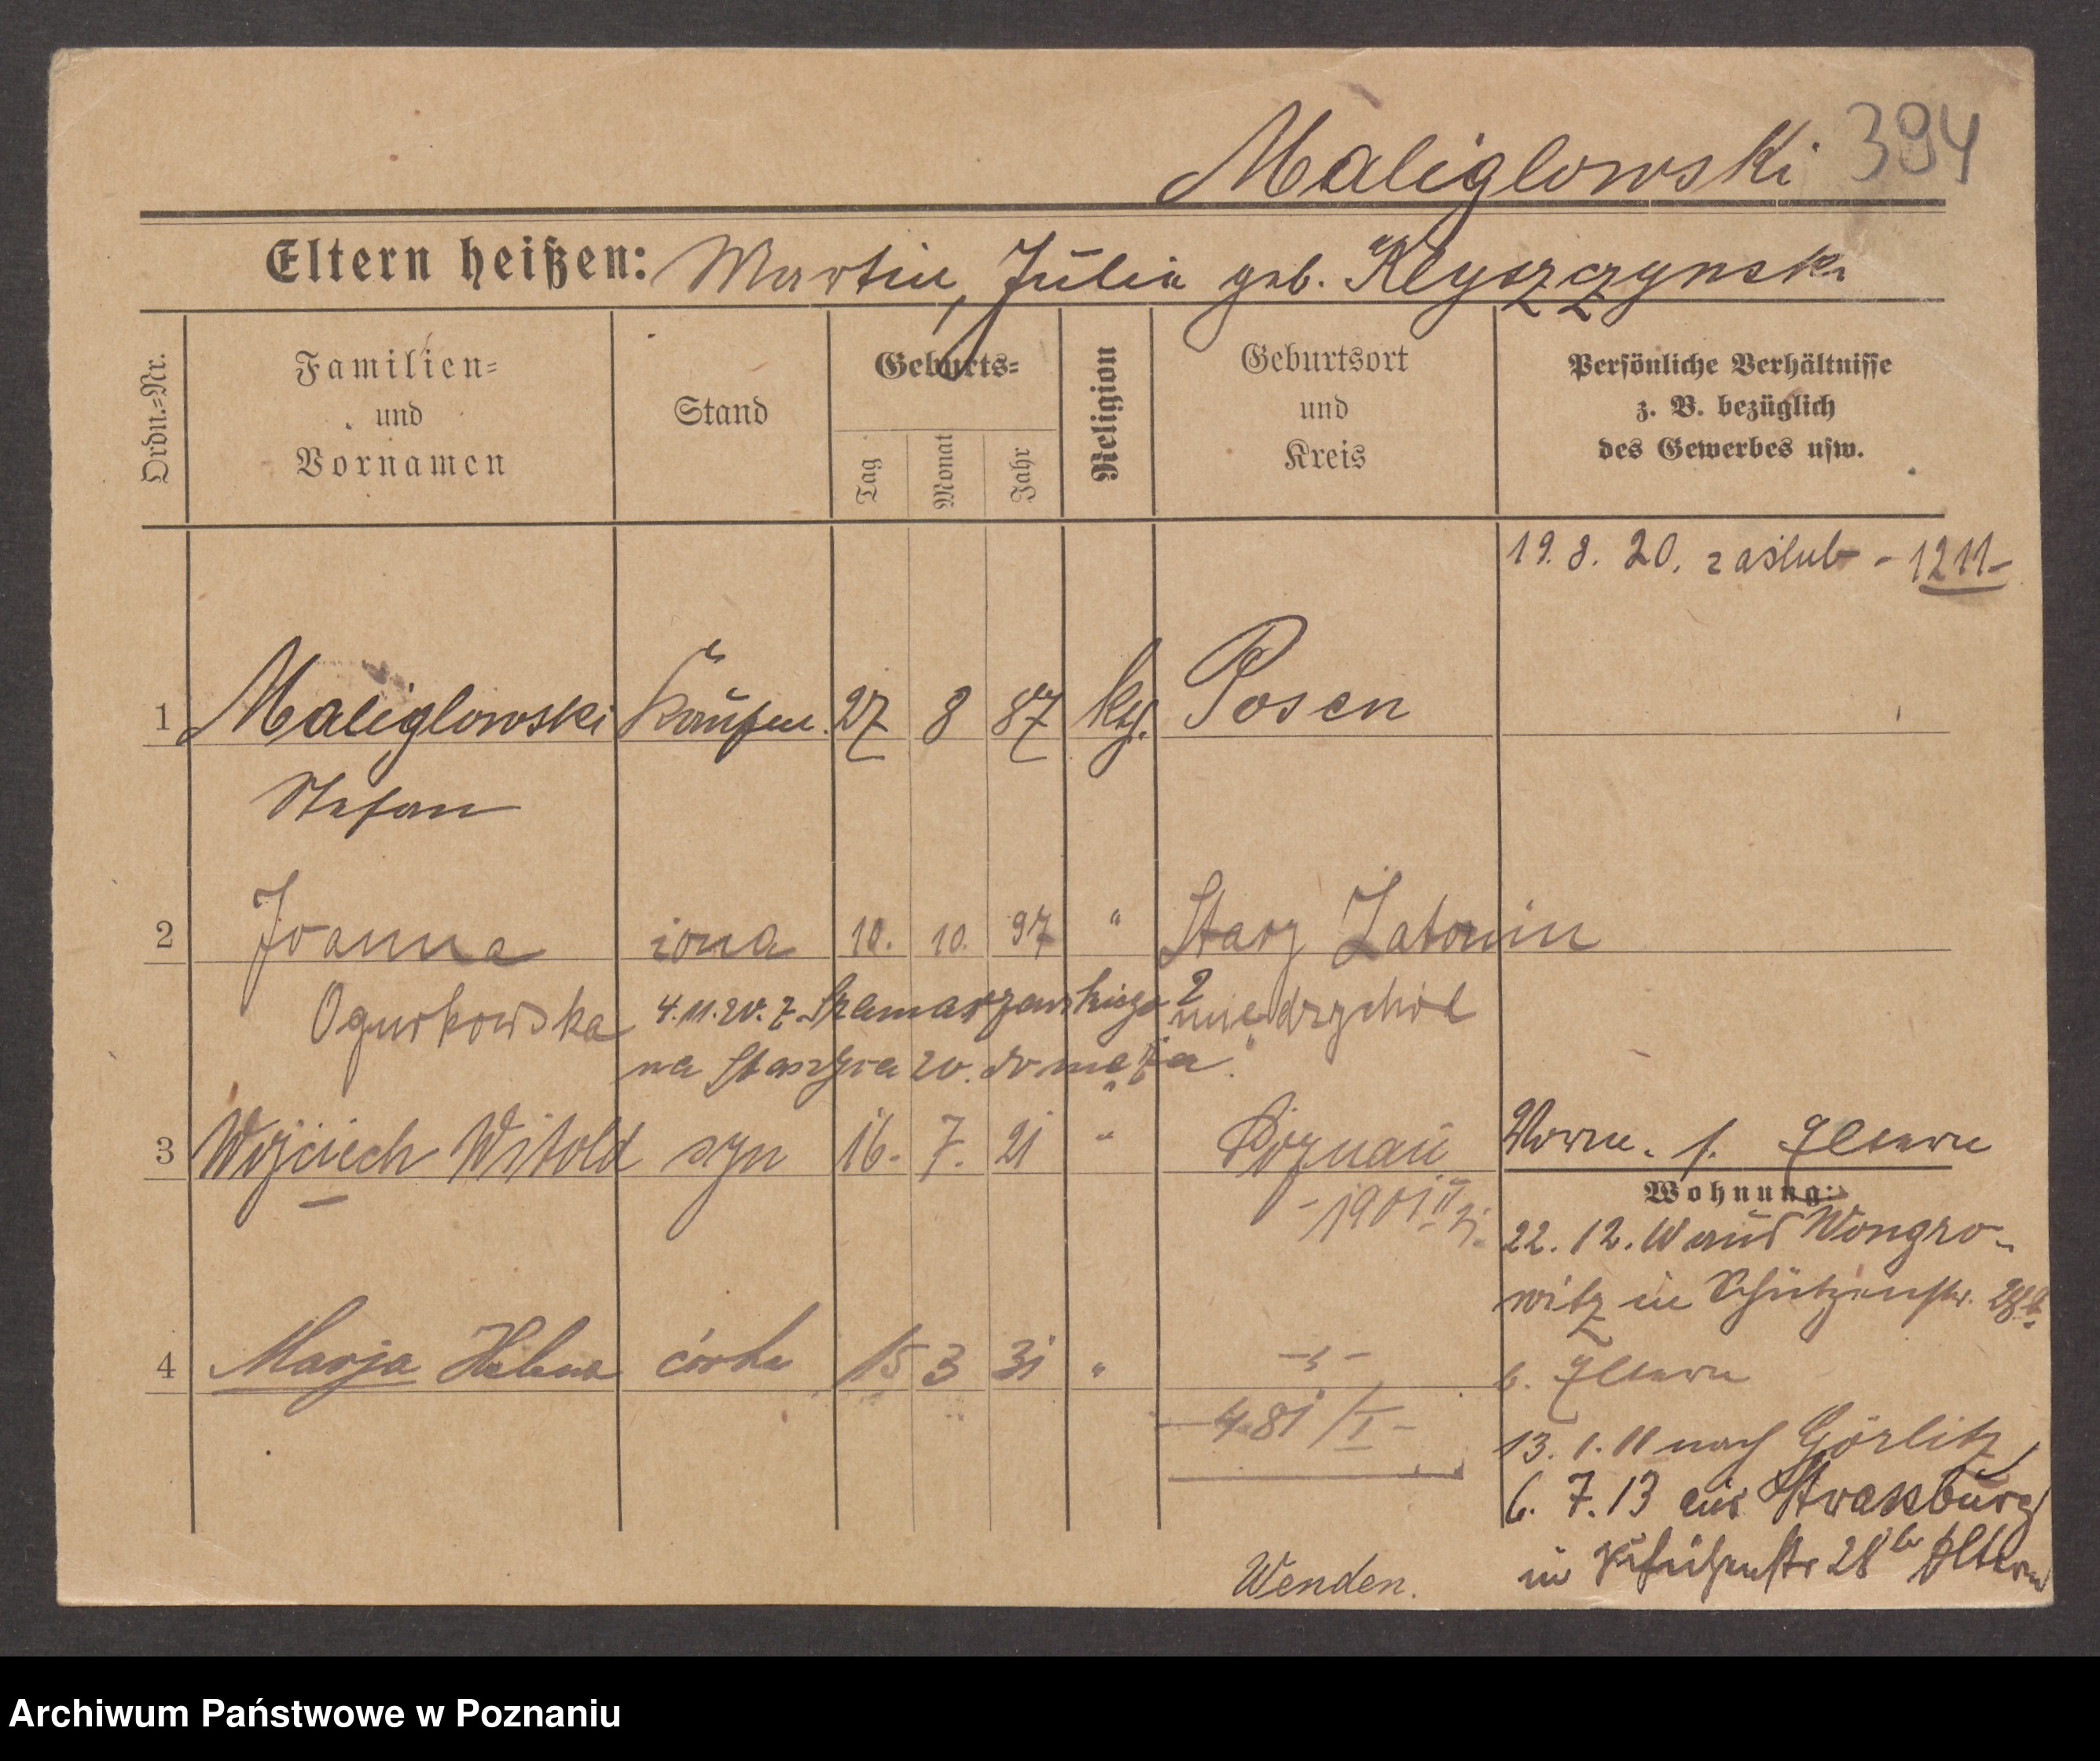 Maliglowski 394
Eltern heißen: Martin, Julia geb. Klyszczynski
Ordn.=Nr.
Familien=
und
Vornamen
Stand
Geburts=
Tag
Monat
Jahr
Religion
Geburtsort
und
Kreis
Persönliche Verhältnisse
z. B. bezüglich
des Gewerbes usw.
19. 8. 20. zaślub - 1211-
1 Maliglowski Kaufm. 27 8 87 kth. Posen
Stefan
2 Joanna żona 10. 10. 97 " Stary Zatomin
Ogurkowska 4.11.20. z Szamarzewskiego 2 międzychód
na Staszyca 20. do męża.
3 Wojciech Witold syn 16. 7. 21 " Poznań
Worm. s. Eltern
-1901 II 21
Wohnung:
22. 12. 10 aus Wongro-
witz in Schützenstr. 28b
b. Eltern
4 Marja Helena córka 15 3 31 " -"-
481/I-
13. 1. 11 nach Görlitz
6. 7. 13 aus Strassburg
in Schützenstr 28 b Eltern
Wenden.
Archiwum Państwowe w Poznaniu